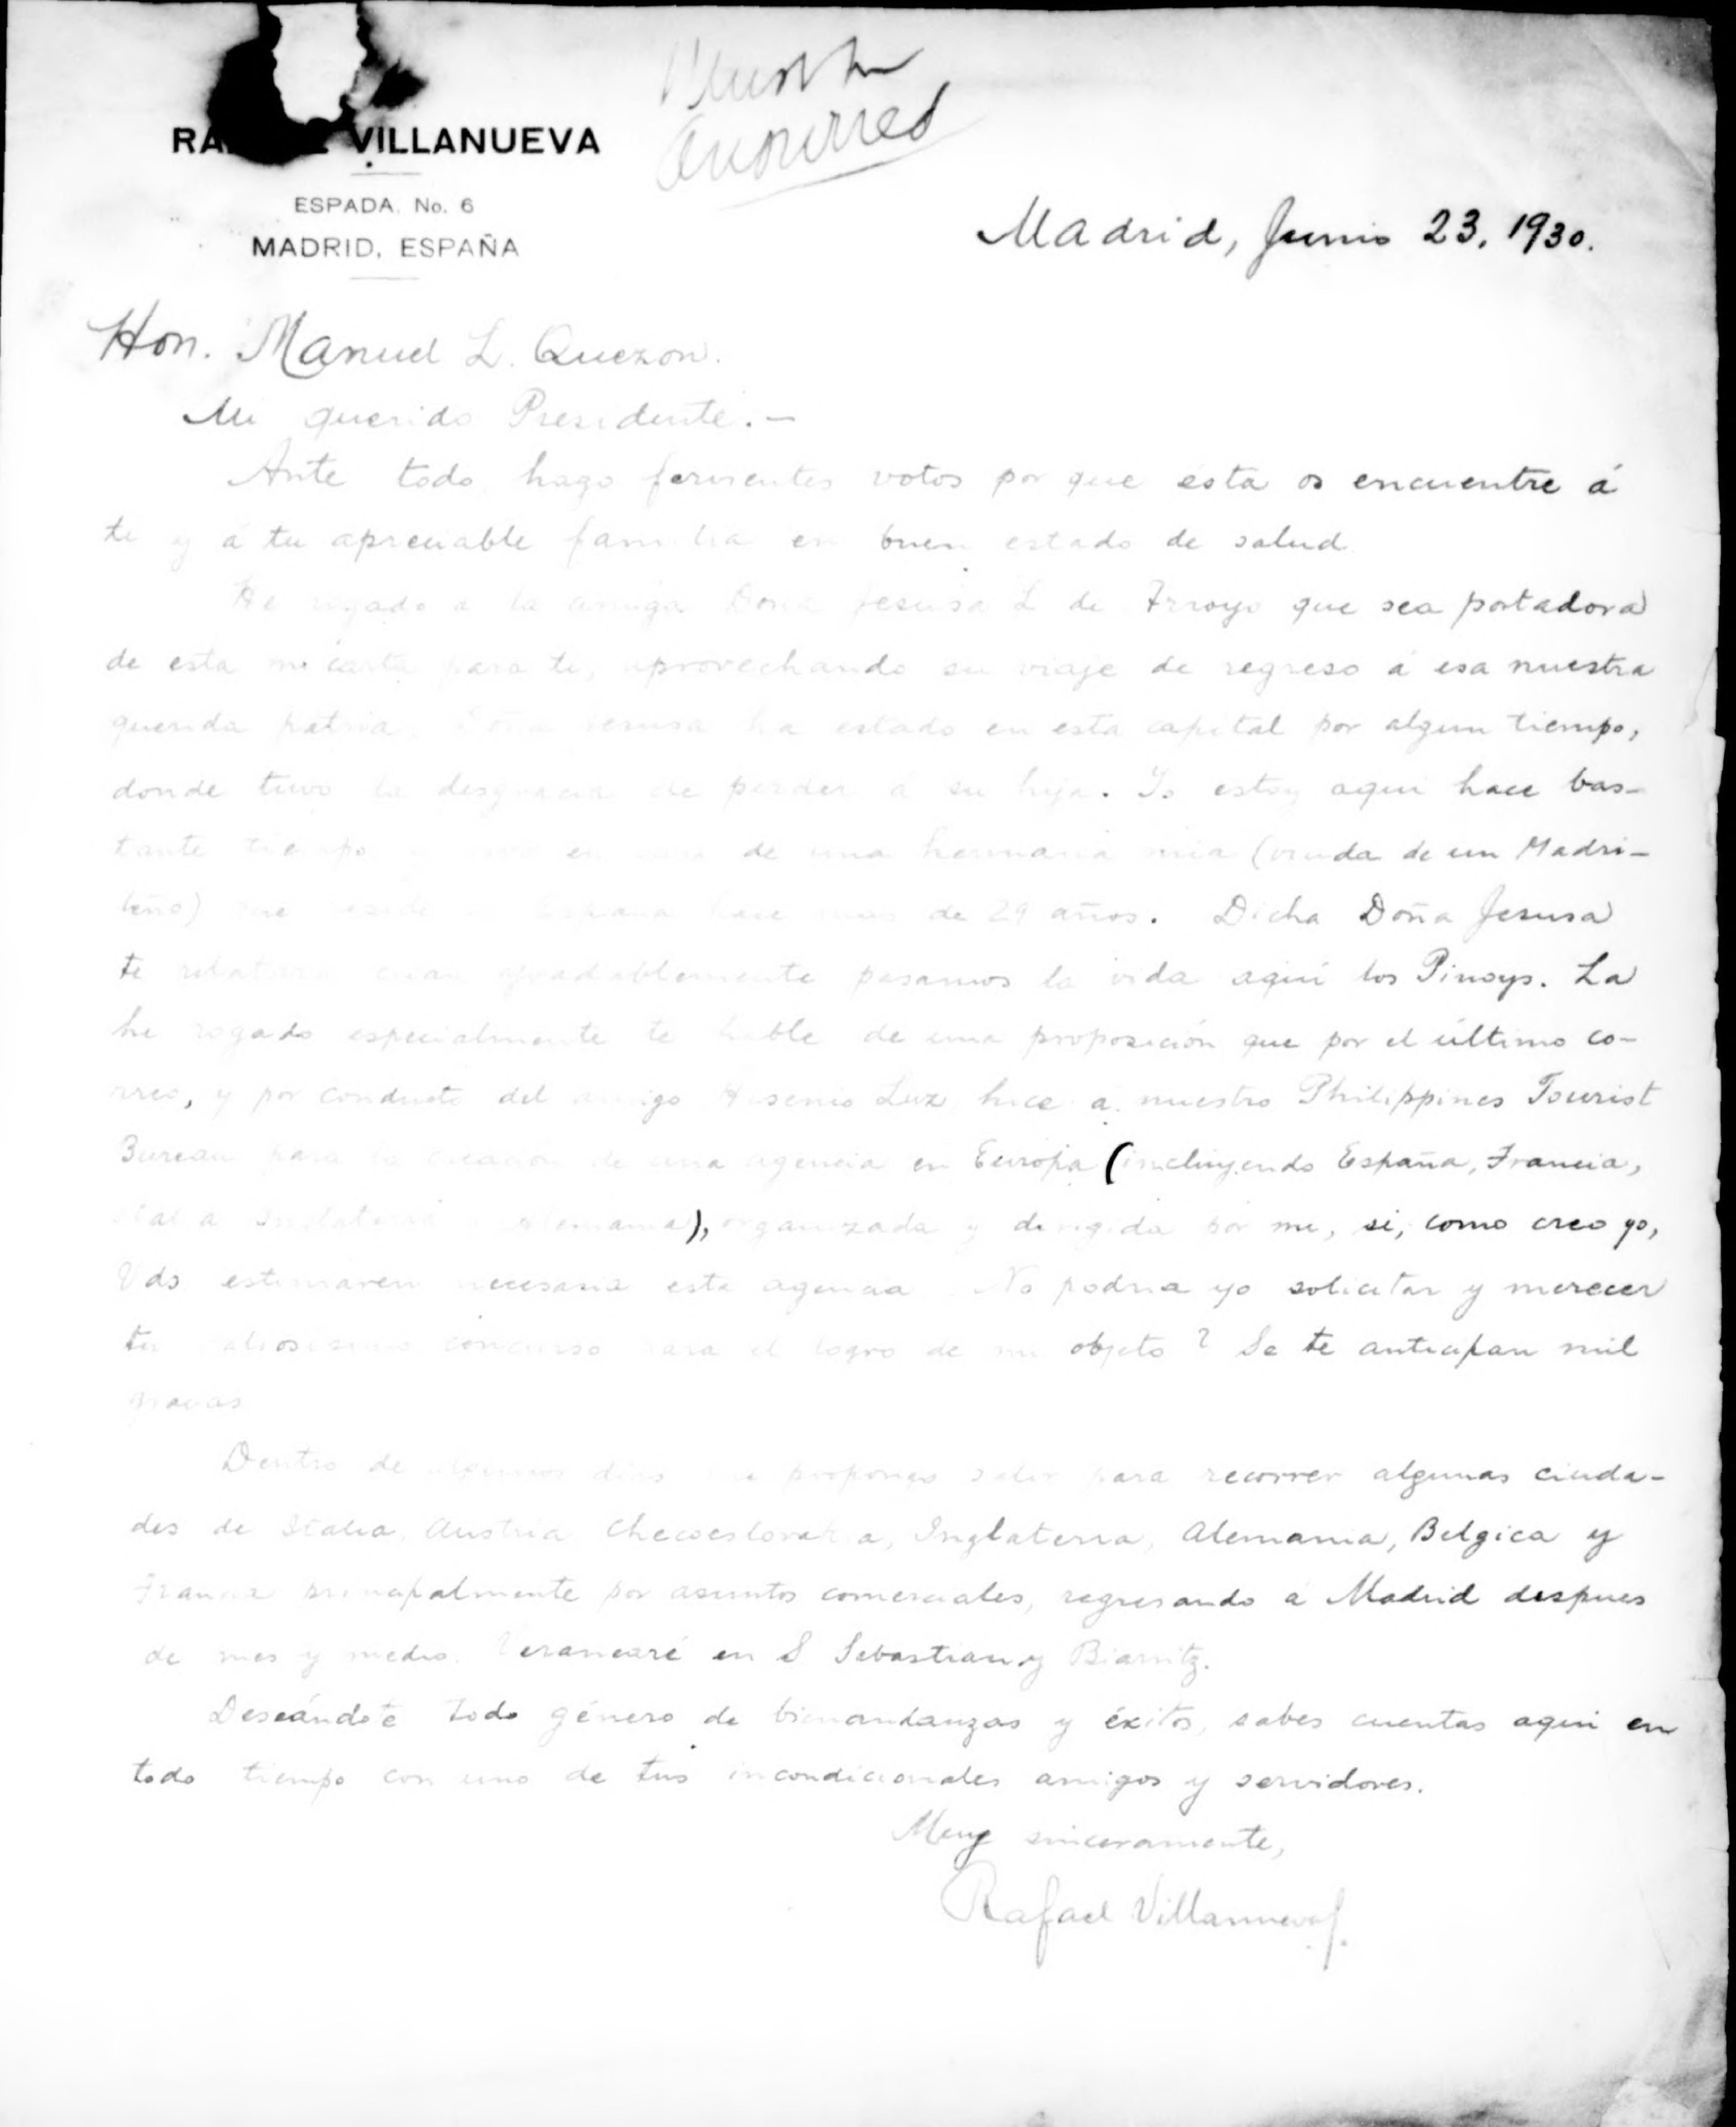 VILLANUEVA
ESPADA, No. 6
MADRID, ESPAÑA
Madrid, Junio 23, 1930.
Hon. Manuel L. Quezon.
Mi querido Presidente.—
Ante todo, hago fervientes votos por que ésta os encuentre á
ti y á tu apreciable familia en buen estado de salud
He rogado a la amiga Doña Jesusa L de Arroyo que sea portadora
de esta mi carta para ti, aprovechando su viaje de regreso á esa nuestra
querida patria. Doña Jesusa ha estado en esta capital por algun tiempo,
donde tuvo la desgracia de perder á su hija. Yo estoy aqui hace bas-
tante tiempo y vivo en casa de una hermana mia (viuda de un Madri-
leño) que reside en España hace mas de 29 años. Dicha Doña Jesusa
te relatará cuan agradablemente pasamos la vida aquí los Pinoys. La
he rogado especialmente te hable de una proposición que por el último co-
rreo, y por conducto del amigo Luz hice á nuestro Philippines Tourist
Bureau para la creación de una agencia en Europa (incluyendo España, Francia,
Italia Inglaterra y Alemania), organizada y dirigida por mi, si, como creo yo,
Vds estimaren necesaria esta agencia. No podria yo solicitar y merecer
tu valiosisimo concurso para el logro de mi objeto? Se te anticipan mil
gracias
Dentro de algunos dias me propongo salir para recorrer algunas ciuda-
des de Italia, Austria, Checoeslovakia, Inglaterra, Alemania, Belgica y
Francia principalmente por asuntos comerciales, regresando á Madrid despues
de mes y medio. Veranearé en S Sebastian y Biarritz.
Deseándote todo género de bienandanzas y éxitos, sabes cuentas aqui en
todo tiempo con uno de tus incondicionales amigos y servidores.
Muy sinceramente,
Rafael Villanueva